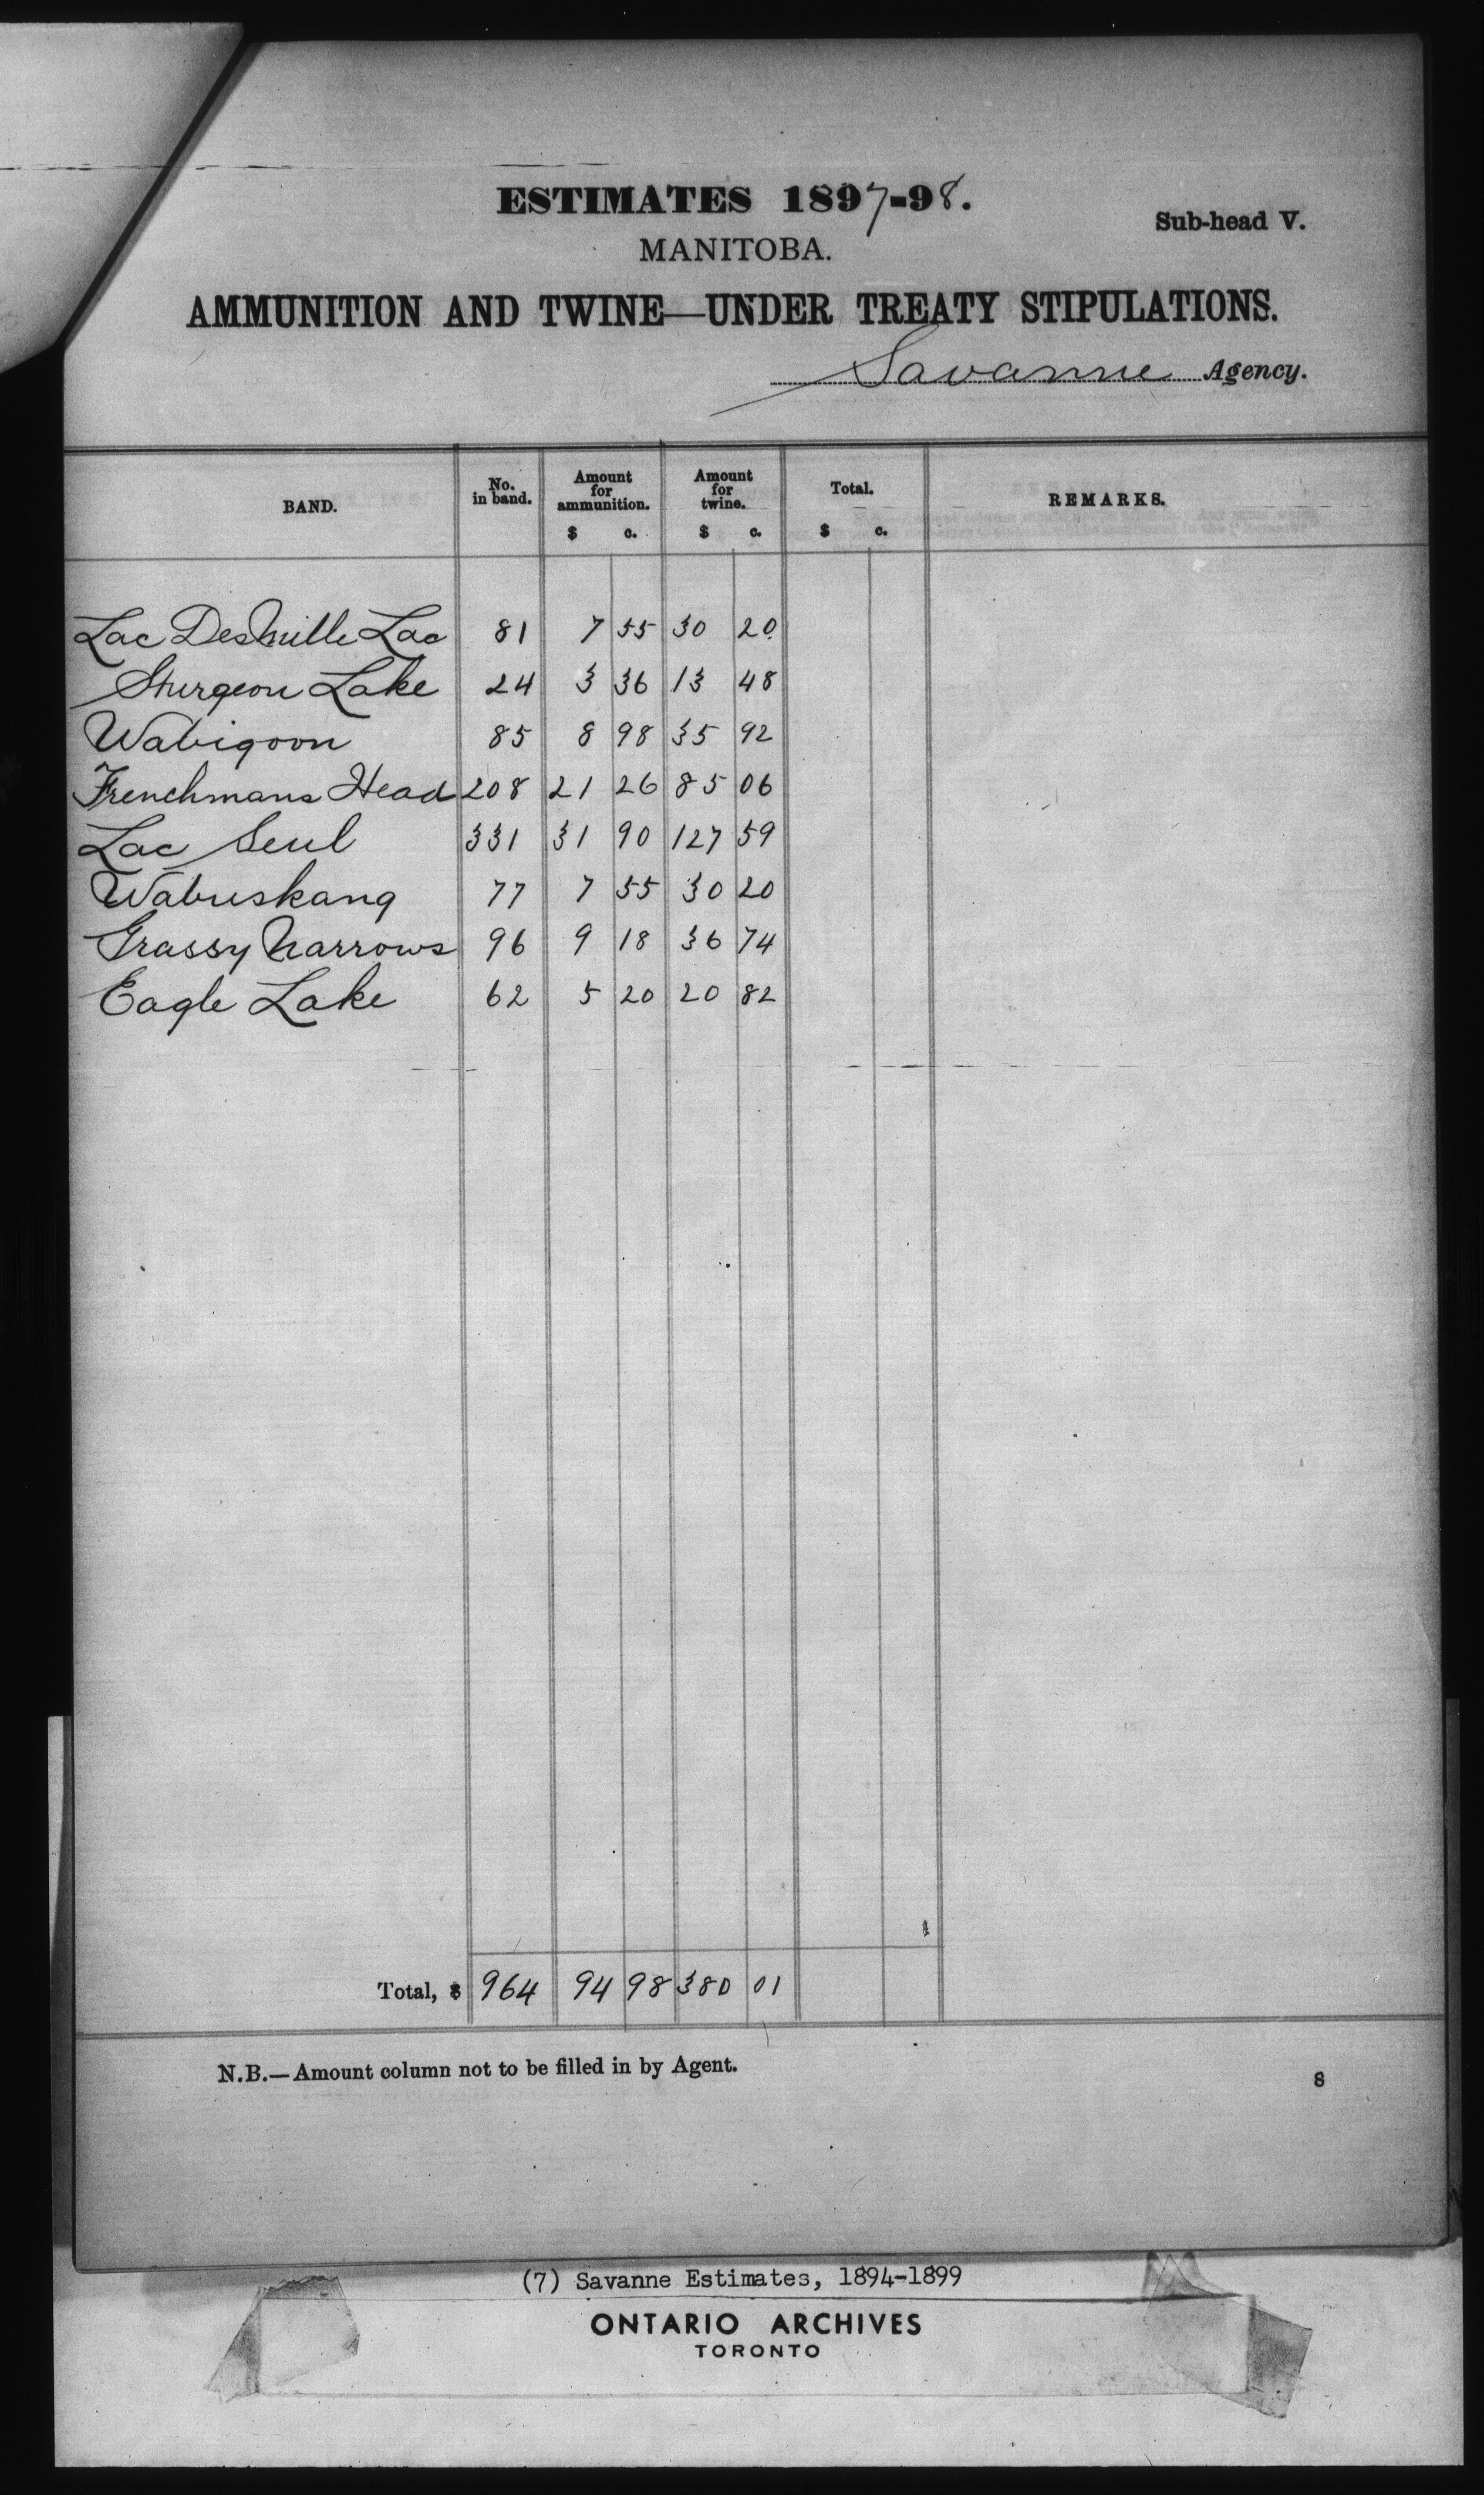 ESTIMATES 1897-98.
Sub-head V.
MANITOBA.
AMMUNITION AND TWINE—UNDER TREATY STIPULATIONS.
Savanne Agency.
BAND. No. in band. Amount for ammunition. $ c. Amount for twine. $ c. Total. $ c. REMARKS.
Lac Des Mille Lac 81 7 55 30 20
Sturgeon Lake 24 3 36 13 48
Wabigoon 85 8 98 35 92
Frenchmans Head 208 21 26 85 06
Lac Seul 331 31 90 127 59
Wabuskang 77 7 55 30 20
Grassy Narrows 96 9 18 36 74
Eagle Lake 62 5 20 20 82
Total, $ 964 94 98 380 01
N.B.—Amount column not to be filled in by Agent.
8
(7) Savanne Estimates, 1894-1899
ONTARIO ARCHIVES
TORONTO